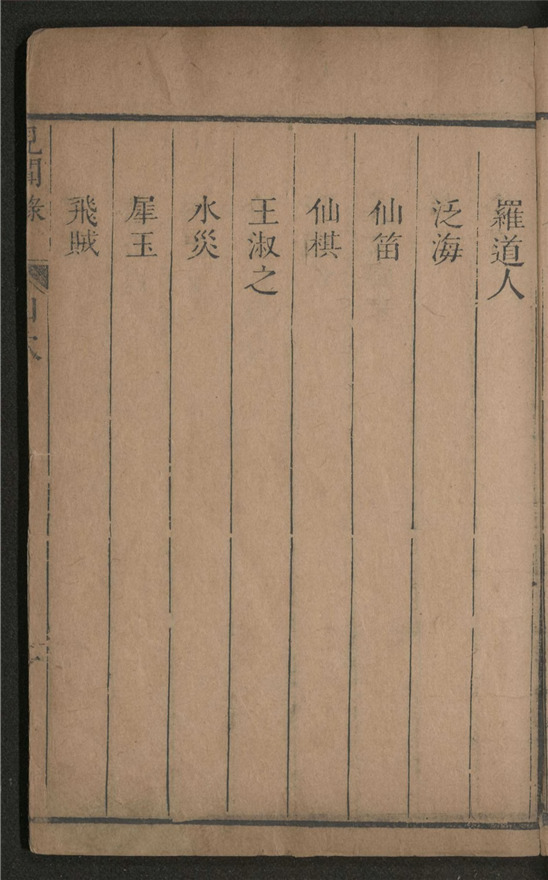 羅道人
泛海
仙笛
仙棋
王淑之
水災
犀玉
飛賊
見聞錄